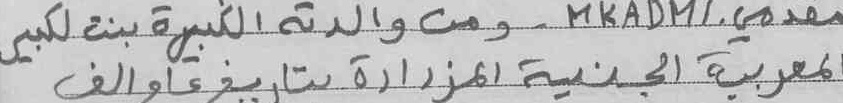 مقدمي. MKADMI - ومن والدته الكبيرة بنت لكبير
المغربية الجنسية المزدادة بتاريخ